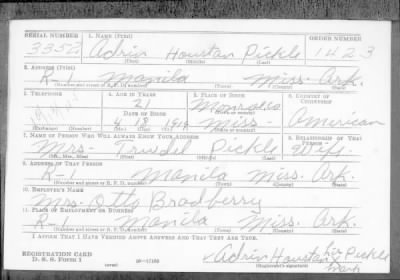 SERIAL NUMBER 1. NAME (Print) ORDER NUMBER
335 Adrin Houstan Pickle 1423
(First) (Middle) (Last)
2. ADDRESS (Print)
R-1 Manila Miss. Ark.
(Number and street or R. F. D. number) (Town) (County) (State)
3. TELEPHONE 4. AGE IN YEARS 5. PLACE OF BIRTH 6. COUNTRY OF CITIZENSHIP
21 Monroe Co
DATE OF BIRTH (Town or county)
4 18 1919 Miss- American
(Exchange) (Number) (Mo.) (Day) (Yr.) (State or country)
7. NAME OF PERSON WHO WILL ALWAYS KNOW YOUR ADDRESS 8. RELATIONSHIP OF THAT PERSON
Mrs- Pickle Wife
(Mr., Mrs., Miss) (First) (Middle) (Last)
9. ADDRESS OF THAT PERSON
R-1 Manila Miss. Ark.
(Number and street or R. F. D. number) (Town) (County) (State)
10. EMPLOYER'S NAME
Mrs. Otto Bradberry
11. PLACE OF EMPLOYMENT OR BUSINESS
R-1 Manila Miss. Ark.
(Number and street or R. F. D. number) (Town) (County) (State)
I AFFIRM THAT I HAVE VERIFIED ABOVE ANSWERS AND THAT THEY ARE TRUE.
REGISTRATION CARD
D. S. S. Form 1 (over) 16-17105 Adrin Houstan his Pickle
(Registrant's signature) mark